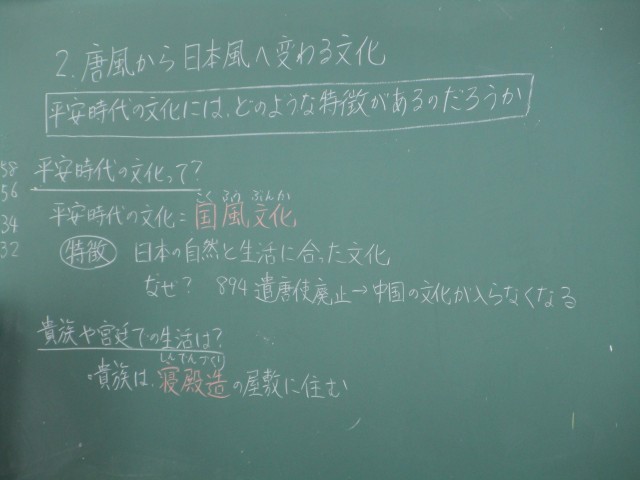 2. 唐風から日本風へ変わる文化
平安時代の文化には、どのような特徴があるのだろうか
58
平安時代の文化って?
56
こく ふう ぶんか
34
平安時代の文化=国風文化
32
特徴 日本の自然と生活に合った文化
なぜ? 894 遣唐使廃止→中国の文化が入らなくなる
貴族や宮廷での生活は?
しんでんづくり
・貴族は、寝殿造の屋敷に住む